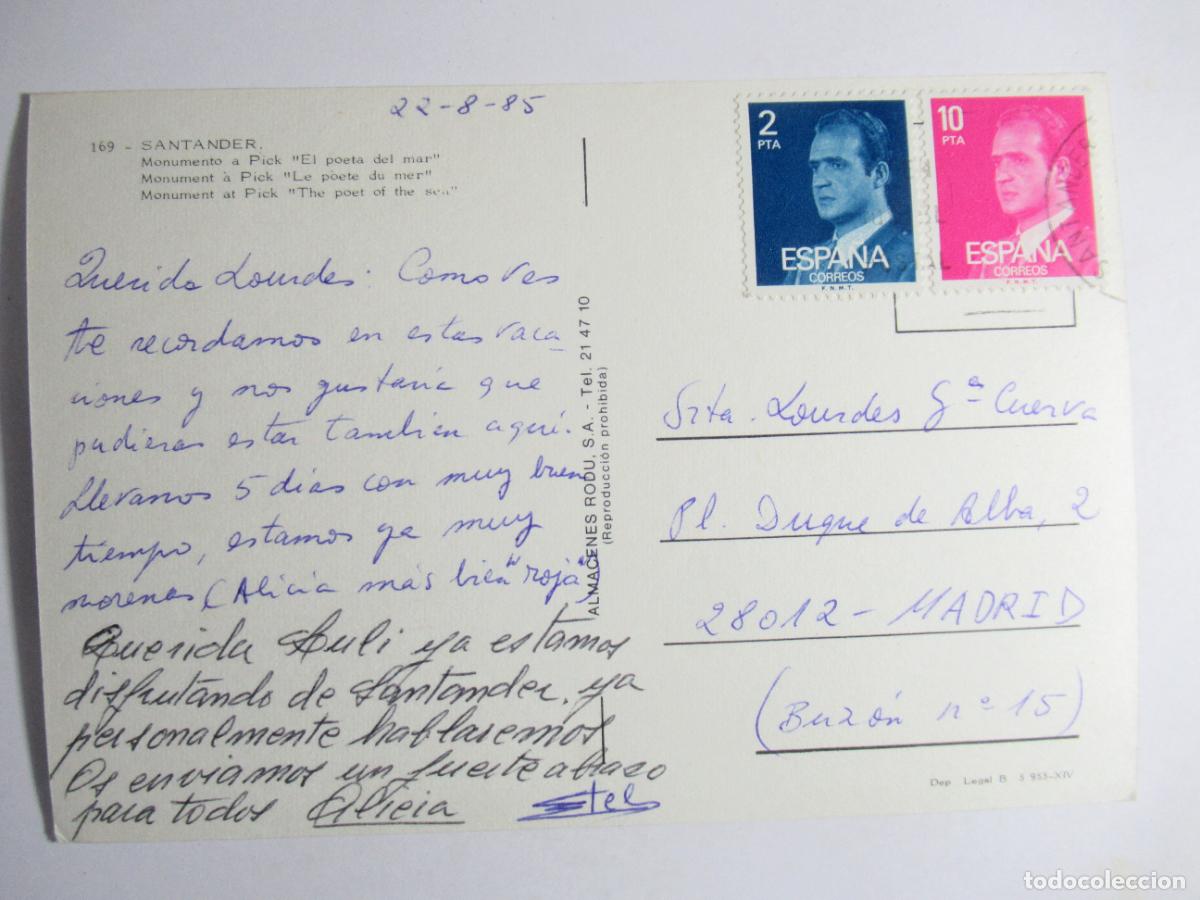 22-8-85
169 - SANTANDER.
Monumento a Pick "El poeta del mar"
Monument à Pick "Le poete du mer"
Monument at Pick "The poet of the sea"
Querida Lourdes: Como ves
te recordamos en estas vaca-
ciones y nos gustaría que
pudieras estar tambien aquí.
Llevamos 5 dias con muy buen
tiempo, estamos ya muy
morenas (Alicia más bien "roja")
Querida Auli ya estamos
disfrutando de Santander. ya
personalmente hablaremos
Os enviamos un fuerte abrazo
para todos Alicia Estel
ALMACENES RODU, S.A. - Tel. 21 47 10
(Reproducción prohibida)
2
PTA
ESPAÑA
CORREOS
F.N.M.T.
10
PTA
ESPAÑA
CORREOS
F.N.M.T.
Srta. Lourdes Gª Cuerva
Pl. Duque de Alba, 2
28012 - MADRID
(Buzón nº 15)
Dep. Legal B. 5 953-XIV
todocoleccion